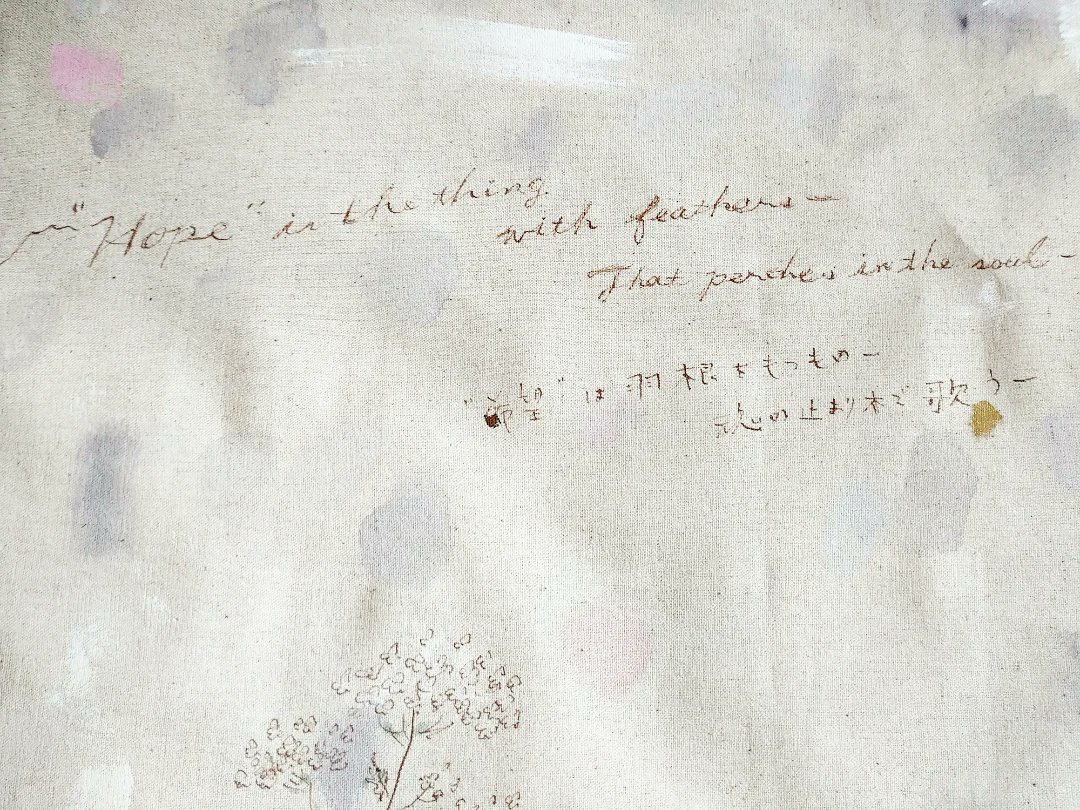 "Hope" is the thing
with feathers —
That perches in the soul —
"希望" は 羽根をもつもの ー
の止まり木で歌う ー